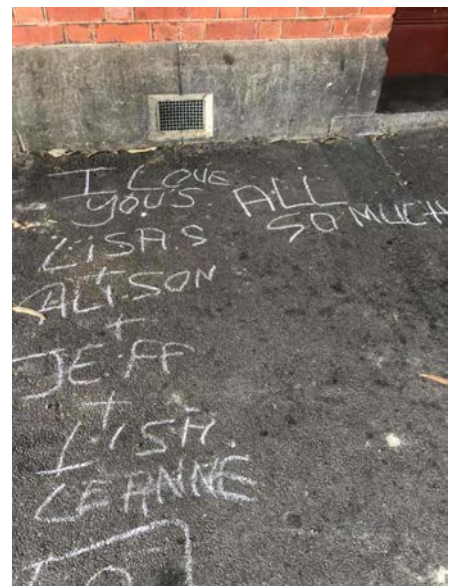 I LOVE
YOUS ALL
SO MUCH
LISA.S
+
ALISON
+
JEFF
+
LISA.
LEANNE